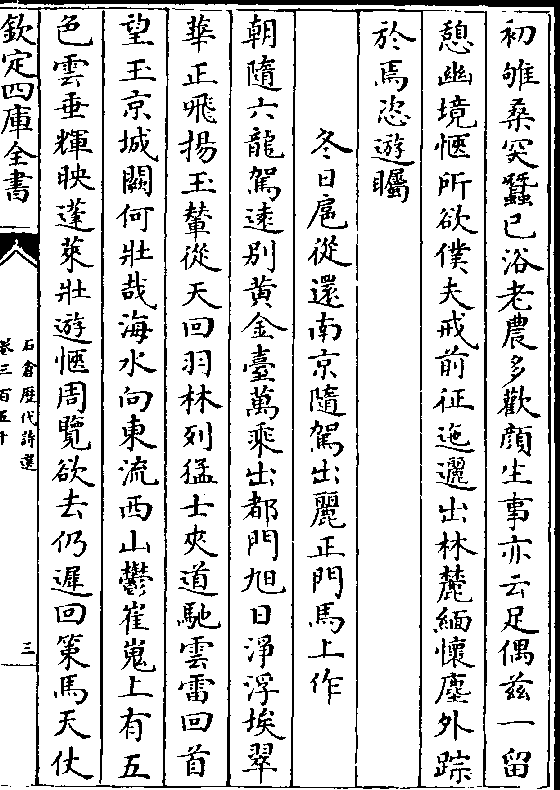 初雊桑突蠶已浴老農多歡顔生事亦云足偶兹一留
憩幽境愜所欲僕夫戒前征迤邐出林麓緬懷塵外踪
於焉恣遊矚
冬日扈從還南京隨駕出麗正門馬上作
朝隨六龍駕逺别黄金臺萬乘出都門旭日淨浮埃翠
華正飛揚玉輦從天回羽林列猛士夾道馳雲雷回首
望玉京城闕何壯哉海水向東流西山鬱崔嵬上有五
色雲垂輝映蓬萊壯遊愜周覽欲去仍遲回策馬天仗
欽定四庫全書
石倉歴代詩選
卷三百五十
三